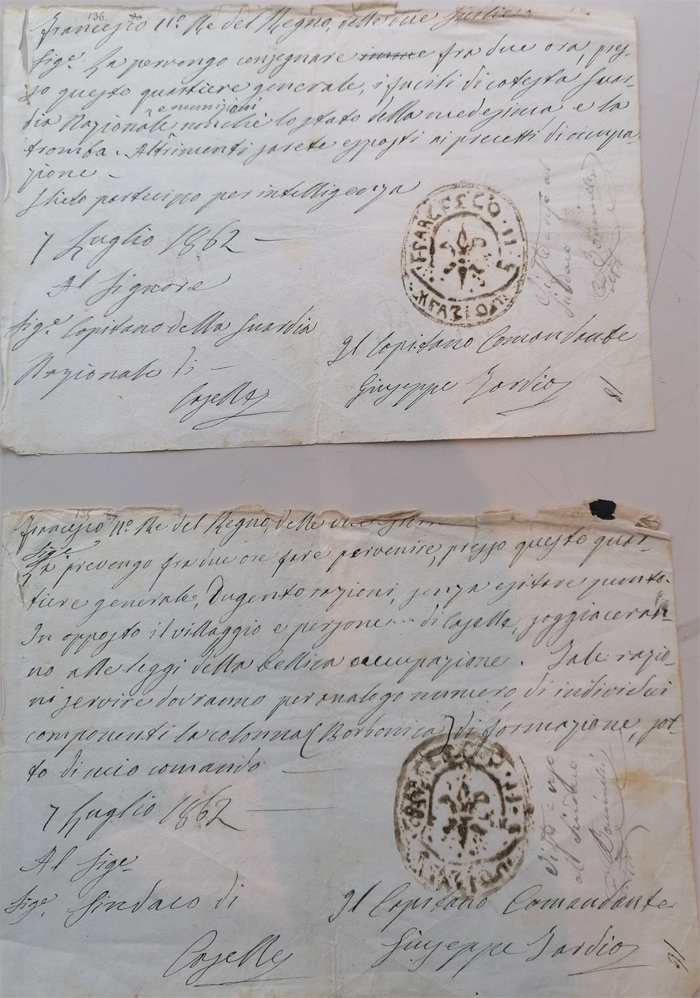 136.
Francesco II.º Re del Regno, delle due Sicilie
Sig.e La prevengo consegnare fra due ora, pres-
so questo quartiere generale, i fucili di cotesta Guar-
dia Nazionale
e munizioni
nonchè lo stato della medesima e la
tromba. Altrimenti sarete esposti ai precetti di occupa-
zione –
Il sito partecipo per intelligenza
7 Luglio 1862 –
Al Signore
Sig.e Capitano della Guardia
Nazionale di –
Caselle
FRANCESCO · II
Il Capitano Comandante
Giuseppe Tardio
135
Francesco II.º Re del Regno, delle due
Sig.e
La prevengo fra due ore fare pervenire, presso questo quar-
tiere generale, Dugento razioni, senza esitare punto.
In opposto il villaggio e persone di Caselle, soggiaceran-
no alle leggi della bellica occupazione. Tale razio-
ni servire dovranno per analogo numero, di individui
componenti la colonna (Borbonica) di formazione, sot-
to di mio comando –
7 Luglio 1862
Al Sige
Sige Sindaco di
Caselle
FRANCESCO · II
Il Capitano Comandante
Giuseppe Tardio